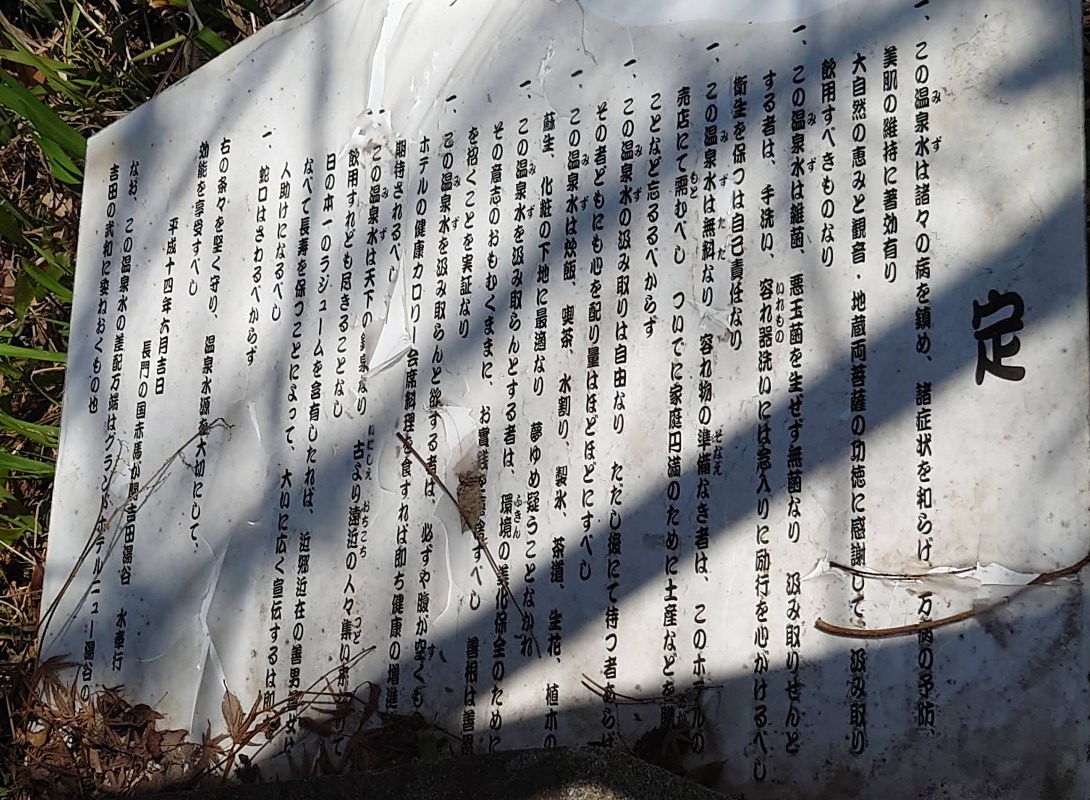 定
一、この温泉水は諸々の病を鎮め、諸症状を和らげ 万病の予防、
美肌の維持に著効有り
大自然の恵みと観音・地蔵両菩薩の功徳に感謝して 汲み取り
飲用すべきものなり
一、この温泉水は雑菌、悪玉菌を生ぜず無菌なり 汲み取りせんと
する者は、手洗い、容れ器洗いには念入りに励行を心がけるべし
衛生を保つは自己責任なり
一、この温泉水は無料なり 容れ物の準備なき者は、このホテルの
売店にて需むべし ついでに家庭円満のために土産などを
ことなど忘るるべからず
一、この温泉水の汲み取りは自由なり ただし後にて待つ者あらば
その者どもにも心を配り量はほどほどにすべし
一、この温泉水は炊飯、喫茶、水割り、製氷、茶道、生花、植木の
蘇生、化粧の下地に最適なり 夢ゆめ疑うことなかれ
一、この温泉水を汲み取らんとする者は、環境の美化保全のために
その意志のおもむくままに、お賽銭を すべし 善根は善
を招くことを実証なり
一、この温泉水を汲み取らんと欲する者は、必ずや腹が空くも
ホテルの健康カロリー会席料理を食すれば即ち健康の増進
期待されるべし
この温泉水は天下の 泉なり 古より遠近の人々集い
飲用すれども尽きることなし
日の本一のラジュームを含有したれば、近郷近在の善男 女は
なべて長寿を保つことによって、大いに広く宣伝するは即
人助けになるべし
一、蛇口はさわるべからず
右の条々を堅く守り、温泉水源を大切にして、
効能を享受すべし
平成十四年六月吉日
長門の国赤馬が関吉田湯谷 水奉行
なお、この温泉水の差配万端はグランドホテルニュー湯谷の
吉田の武和に委ねおくもの也